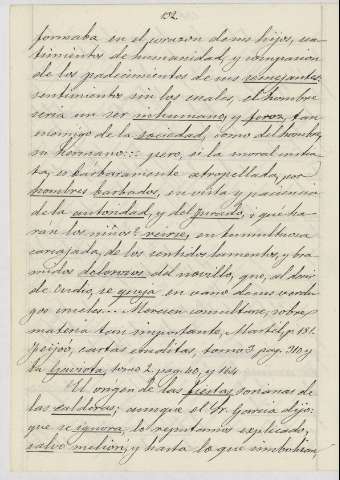 132.
formaba en el corazon de sus hijos, sen-
timientos de humanidad, y compasion
de los padecimientos de sus semejantes;
sentimientos sin los cuales, el hombre
seria un ser inhumano y feroz, tan
enemigo de la sociedad, como del hombre,
su hermano... pero, si la moral instin-
ta, es bárbaramente atropellada, por
hombres barbados, en vista y paciencia
de la autoridad, y del jurado, ¿que ha-
rán los niños? reirse, en tumultuosa
carcajada, de los sentidos lamentos, y bra-
midos dolorosos del novillo, que, al decir
de Ovidio, se queja en vano de sus verdu-
gos crueles... Merecen consultarse, sobre
materia tan importante, Martél, p. 131.
Feijoó, cartas eruditas, tomo 3, pag. 210 y
la Gaviota, tomo 2. pag. 40, y 164
El origen de las fiestas sorianas de
las calderas; aunque el Sr. Garcia dijo:
que se ignora, lo reputamos explicado,
salvo meliori; y hasta lo que simbolizan